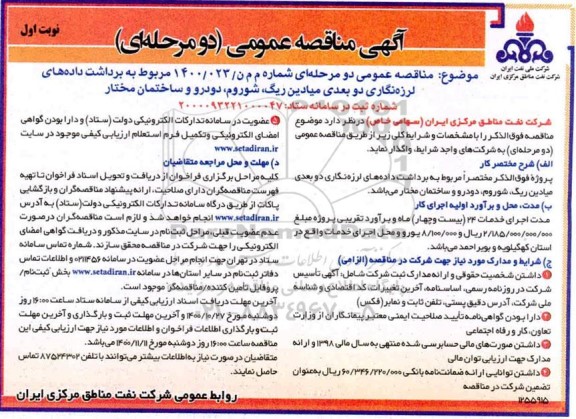 نوبت اول
آگهی مناقصه عمومی (دو مرحله‌ای)
شرکت ملی نفت ایران
شرکت نفت مناطق مرکزی ایران
موضوع: مناقصه عمومی دو مرحله‌ای شماره م م ن/۱۴۰۰/۰۲۳ مربوط به برداشت داده‌های
لرزه‌نگاری دو بعدی میادین ریگ، شوروم، دودرو و ساختمان مختار
شماره ثبت بر سامانه ستاد: ۲۰۰۰۰۹۳۲۲۱۰۰۰۰۴۷
شرکت نفت مناطق مرکزی ایران (سهامی خاص) در نظر دارد موضوع
مناقصه فوق‌الذکر را با مشخصات و شرایط کلی زیر از طریق مناقصه عمومی
(دو مرحله‌ای) به شرکت‌های واجد شرایط، واگذار نماید.
الف) شرح مختصر کار
پروژه فوق‌الذکر مختصراً مربوط به برداشت داده‌های لرزه‌نگاری دو بعدی
میادین ریگ، شوروم، دودرو و ساختمان مختار می‌باشد.
ب) مدت، محل و برآورد اولیه اجرای کار
مدت اجرای خدمات ۲۴ (بیست و چهار) ماه و برآورد تقریبی پروژه مبلغ
۲/۱۸۵/۰۰۰/۰۰۰/۰۰۰ ریال و ۸/۱۰۰/۰۰۰ یورو و محل اجرای خدمات واقع در
استان کهگیلویه و بویراحمد می‌باشد.
ج) شرایط و مدارک مورد نیاز جهت شرکت در مناقصه (الزامی)
داشتن شخصیت حقوقی و ارائه مدارک ثبت شرکت شامل: آگهی تأسیس
شرکت در روزنامه رسمی، اساسنامه، آخرین تغییرات، کد اقتصادی و شناسه
ملی شرکت، آدرس دقیق پستی، تلفن ثابت و نمابر (فکس)
دارا بودن گواهی‌نامه تأیید صلاحیت ایمنی معتبر پیمانکاران از وزارت
تعاون، کار و رفاه اجتماعی
داشتن صورت‌های مالی حسابرسی شده منتهی به سال مالی ۱۳۹۸ و ارائه
مدارک جهت ارزیابی توان مالی
داشتن توانایی ارائه ضمانت‌نامه بانکی ۶۰/۳۴۶/۲۲۰/۰۰۰ ریال به‌عنوان
تضمین شرکت در مناقصه
۱۲۵۵۹۱۵
عضویت در سامانه تدارکات الکترونیکی دولت (ستاد) و دارا بودن گواهی
امضای الکترونیکی و تکمیل فرم استعلام ارزیابی کیفی موجود در سایت
www.setadiran.ir
د) مهلت و محل مراجعه متقاضیان
کلیه مراحل برگزاری فراخوان از دریافت و تحویل اسناد فراخوان تا تهیه
فهرست مناقصه‌گران دارای صلاحیت، ارائه پیشنهاد مناقصه‌گران و بازگشایی
پاکات از طریق درگاه سامانه تدارکات الکترونیکی دولت (ستاد) به آدرس
www.setadiran.ir انجام خواهد شد و لازم است مناقصه‌گران در صورت
عدم عضویت قبلی مراحل ثبت‌نام در سایت مذکور و دریافت گواهی امضای
الکترونیکی را جهت شرکت در مناقصه محقق سازند. شماره تماس سامانه
ستاد در تهران جهت انجام مراحل عضویت در سامانه ۰۲۱۱۴۵۶ و اطلاعات تماس
دفاتر ثبت‌نام در سایر استان‌ها در سامانه www.setadiran.ir بخش "ثبت‌نام/
پروفایل تأمین کننده/مناقصه‌گر" موجود است.
آخرین مهلت دریافت اسناد ارزیابی کیفی از سامانه ستاد ساعت ۱۶:۰۰ روز
دوشنبه مورخ ۱۴۰۰/۱۰/۲۷ و آخرین مهلت ثبت و بارگذاری و آخرین مهلت
ثبت و بارگذاری اطلاعات فراخوان و اطلاعات مورد نیاز جهت ارزیابی کیفی این
مناقصه ساعت ۱۶:۰۰ روز دوشنبه مورخ ۱۴۰۰/۱۱/۱۱ می‌باشد.
متقاضیان در صورت نیاز به اطلاعات بیشتر می‌توانند با تلفن ۸۷۵۲۴۳۰۲ تماس
حاصل نمایند.
روابط عمومی شرکت نفت مناطق مرکزی ایران